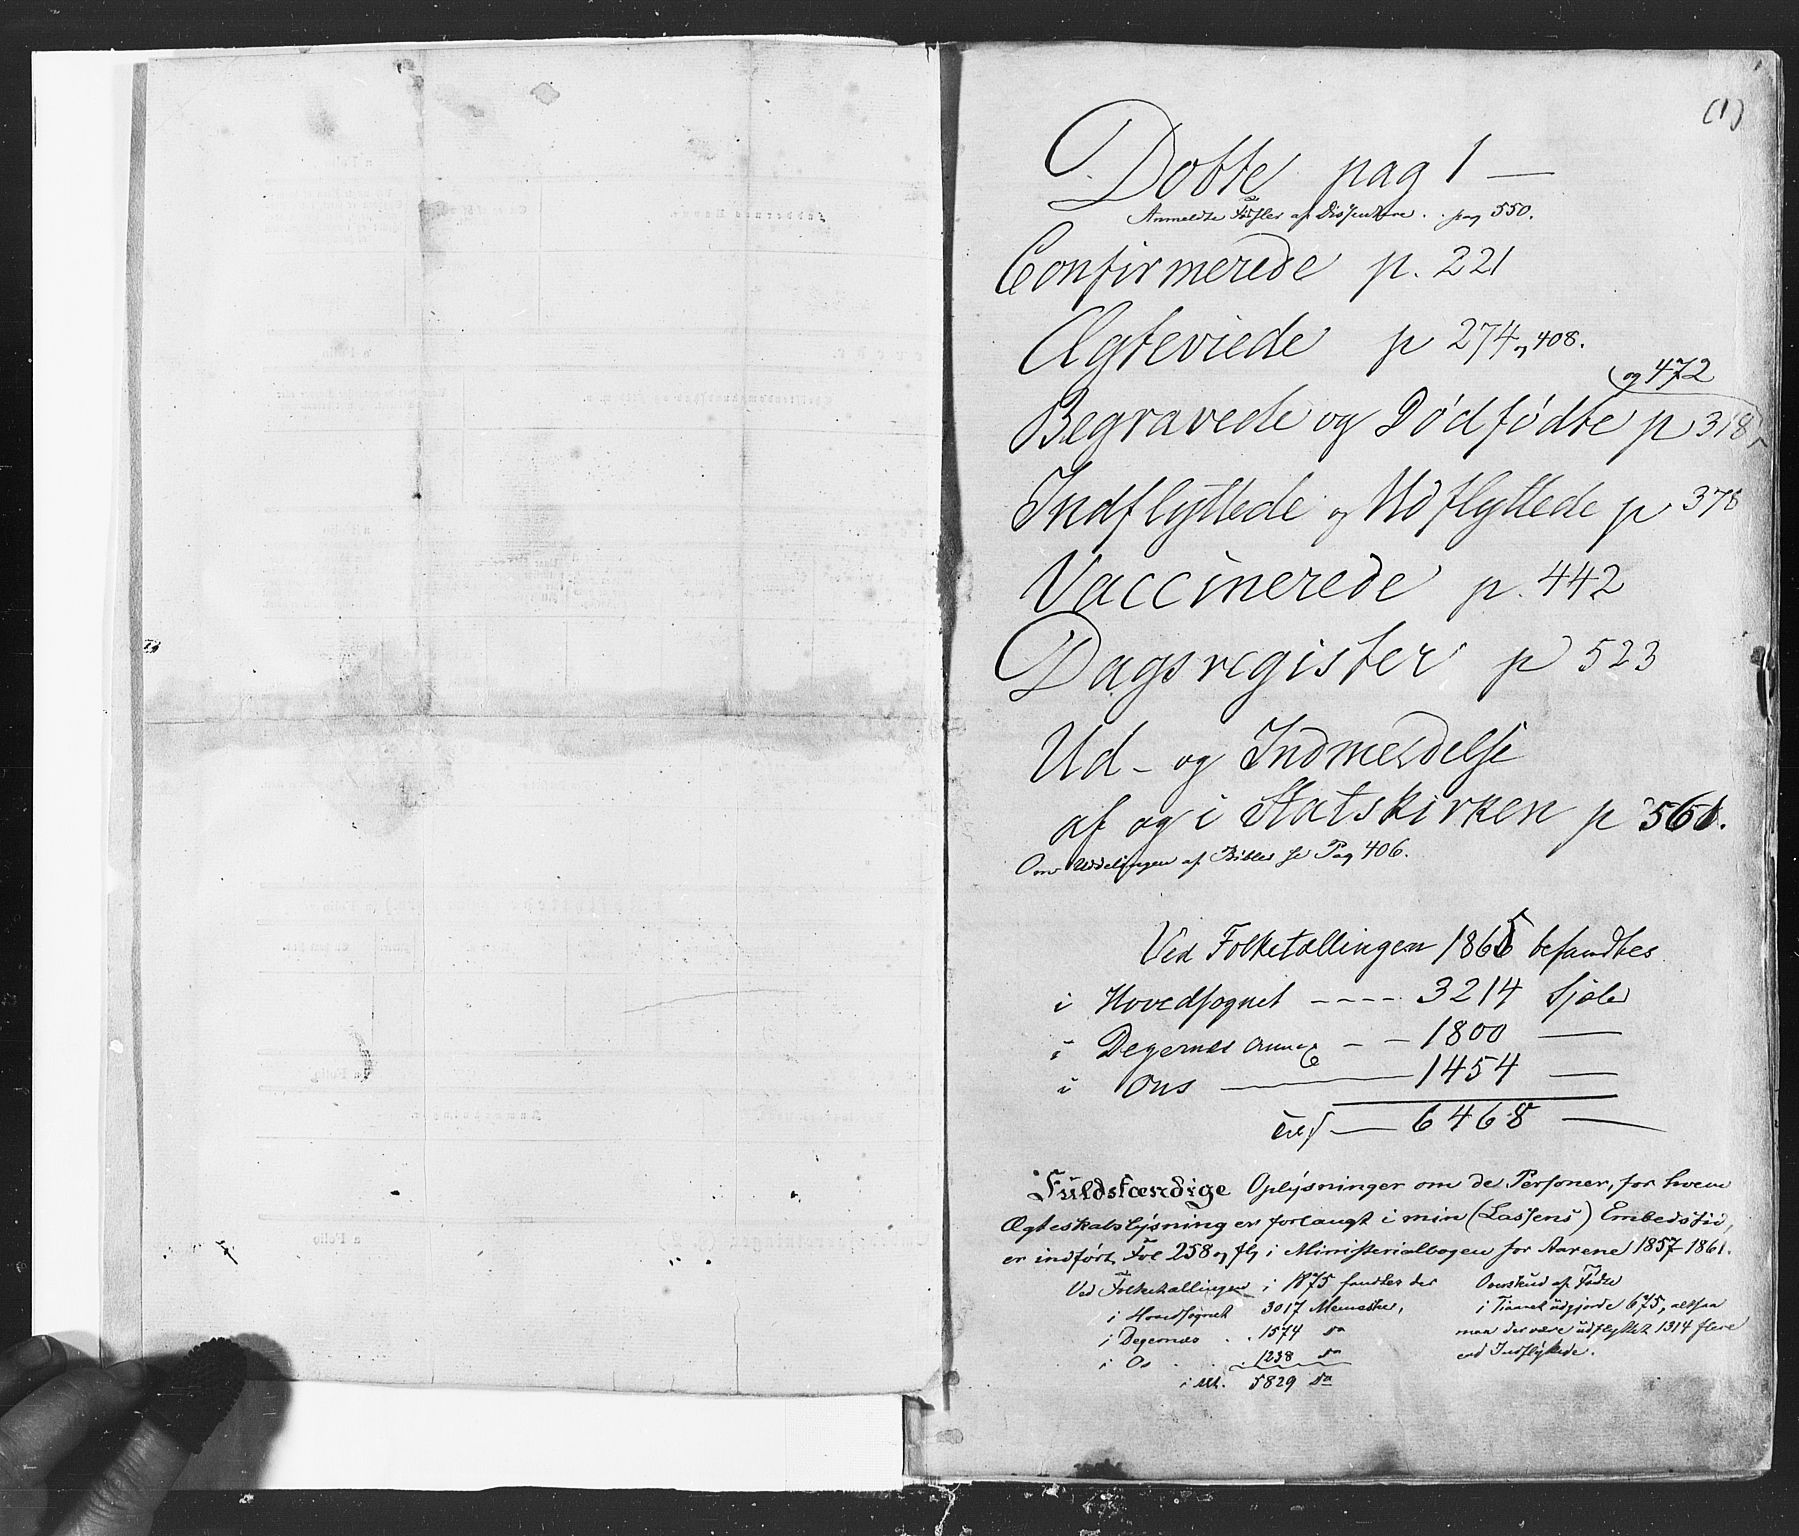 (1)
Døbte pag 1 —
Anmeldte Fødsler af Dissentere . . pag 550.
Confirmerede p. 221
Ægteviede p 274 og 408.
og 472
Begravede og Dødfødte p 318
Indflyttede og Udflyttede p 378
Vaccinerede p. 442
Dagsregister p 523
Ud - og Indmeldelse
af og i Statskirken p 561.
Om Uddelingen af Bibler se Pag 406.
Ved Folketællingen 1865 befandtes
i Hovedsognet ---- 3214 Sjæle
i Degernes Annex - - 1800 —
i Ons — 1454 —
Tils — 6468 —
Fuldstændige Oplysninger om de Personer, for hvem
Ægteskabslysning er forlangt i min (Lassens) Embedstid,
er indført Fol 258 og flg i Ministerialbogen for Aarene 1857-1861.
Ved Folketællingen i 1875 fandtes der
i Hovedsognet 3017 Mennesker,
i Degernes . . 1574 do
i Os . . . 1238 do
i Alt. 5829 do
Overskud af Fødte
i Tiaaret udgjorde 675, altsaa
maa der være udflyttet 1314 flere
end Indflyttede.